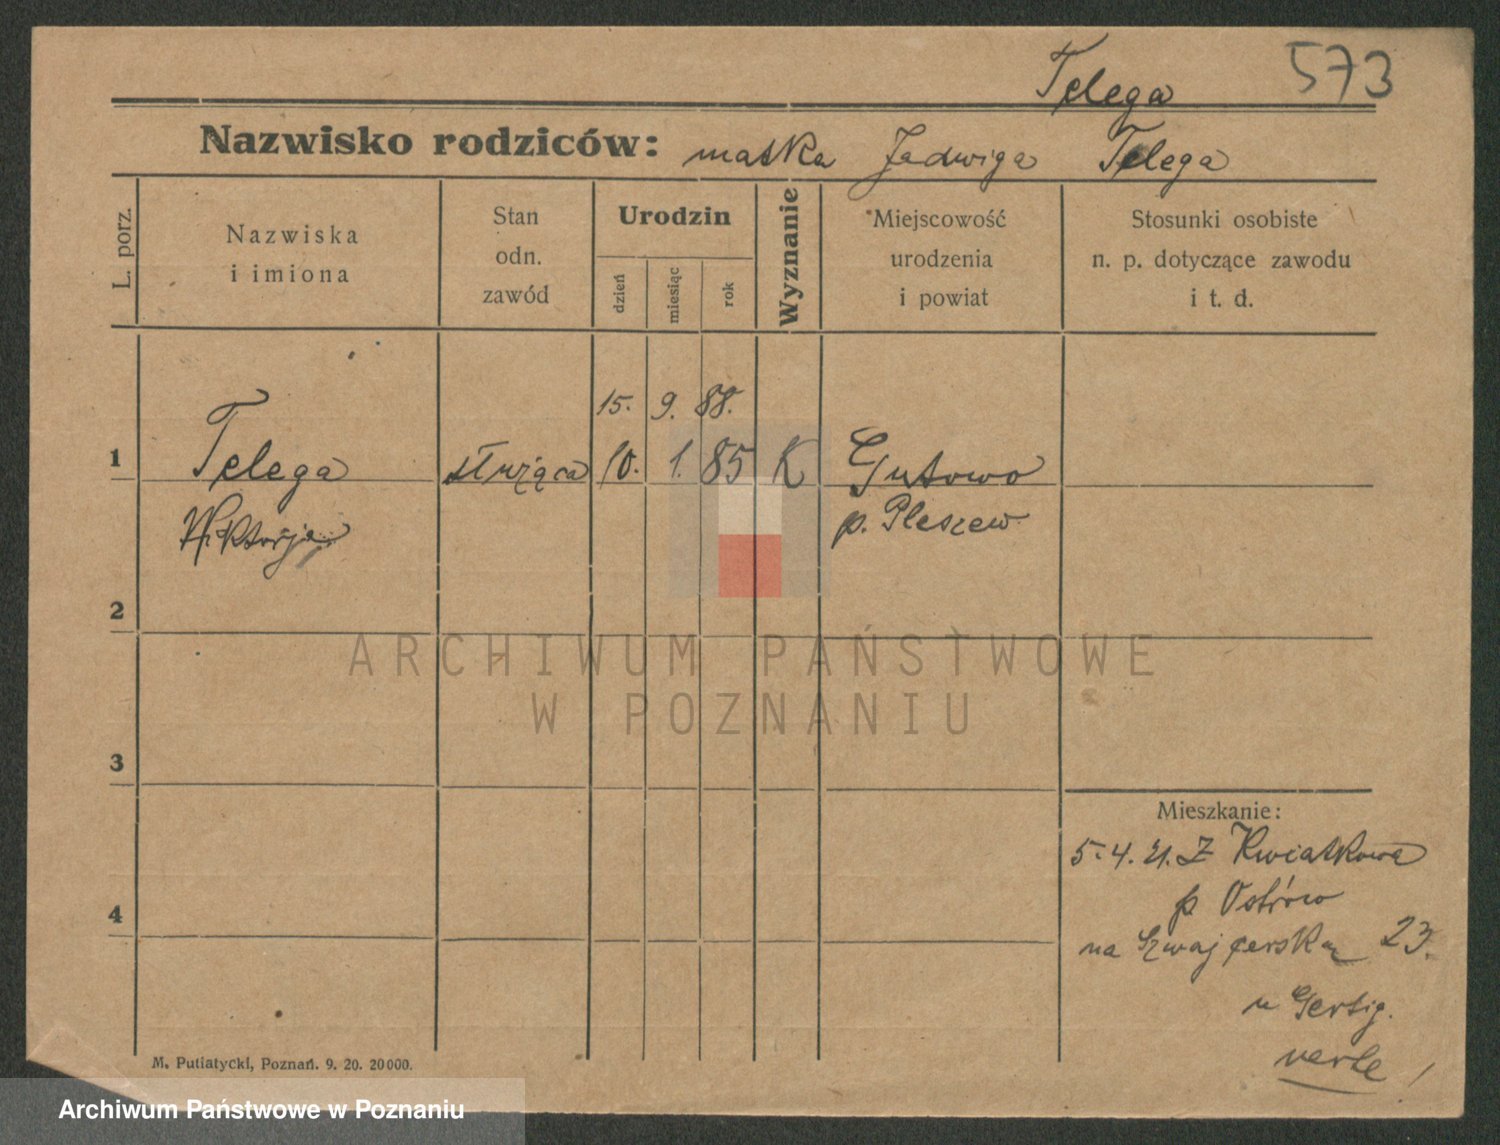 Telega 573
Nazwisko rodziców: matka Jadwiga Telega
L. porz.
Nazwiska
i imiona
Stan
odn.
zawód
Urodzin
dzień
miesiąc
rok
Wyznanie
Miejscowość
urodzenia
i powiat
Stosunki osobiste
n. p. dotyczące zawodu
i t. d.
15. 9. 88.
1 Telega służąca 10. 1. 85 K Gutowo
Wiktorja p. Pleszew
2
ARCHIWUM PAŃSTWOWE
W POZNANIU
3
Mieszkanie:
5.4.21. Z Kwiatkowa
4 p Ostrów
na Szwajcerską 23.
u Gertig.
verte!
M. Putiatycki, Poznań. 9. 20. 20000.
Archiwum Państwowe w Poznaniu